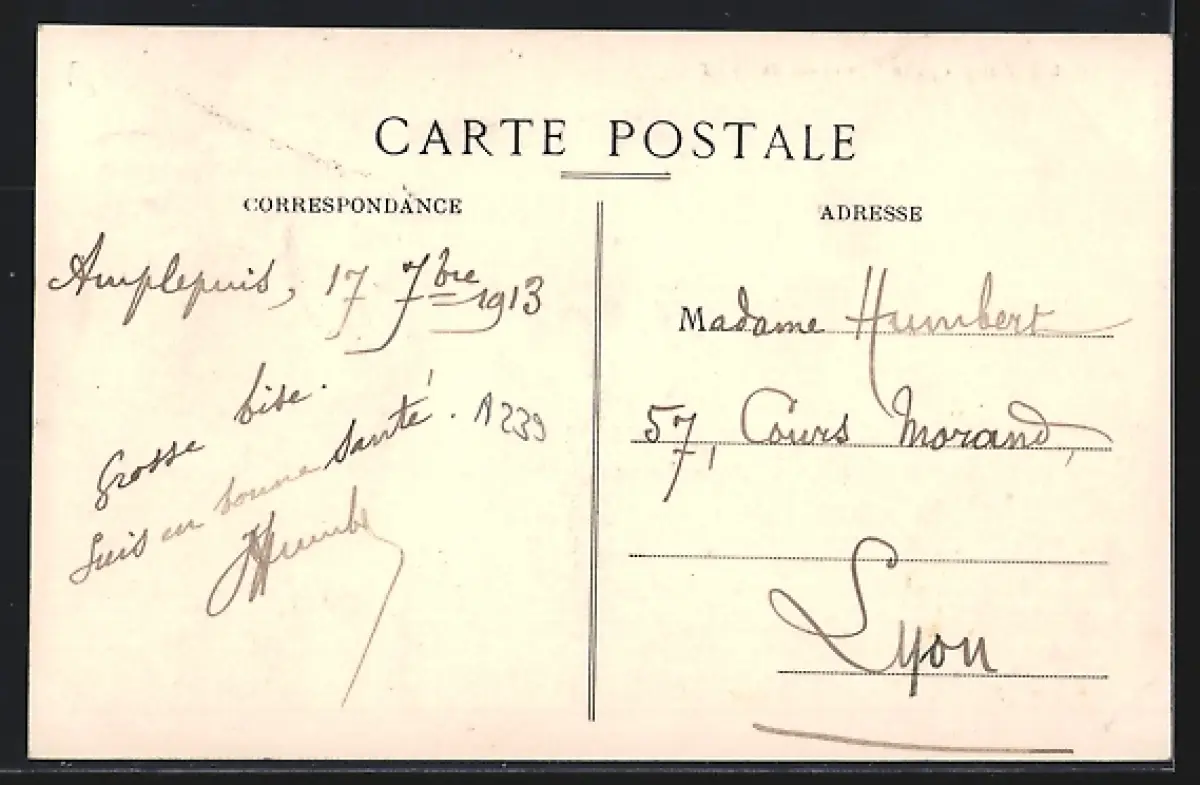 CARTE POSTALE
CORRESPONDANCE
Amplepuis, 17 7bre 1913
Grosse bise.
Suis en bonne santé.
A239
JHumbert
ADRESSE
Madame Humbert
57, Cours Morand,
Lyon